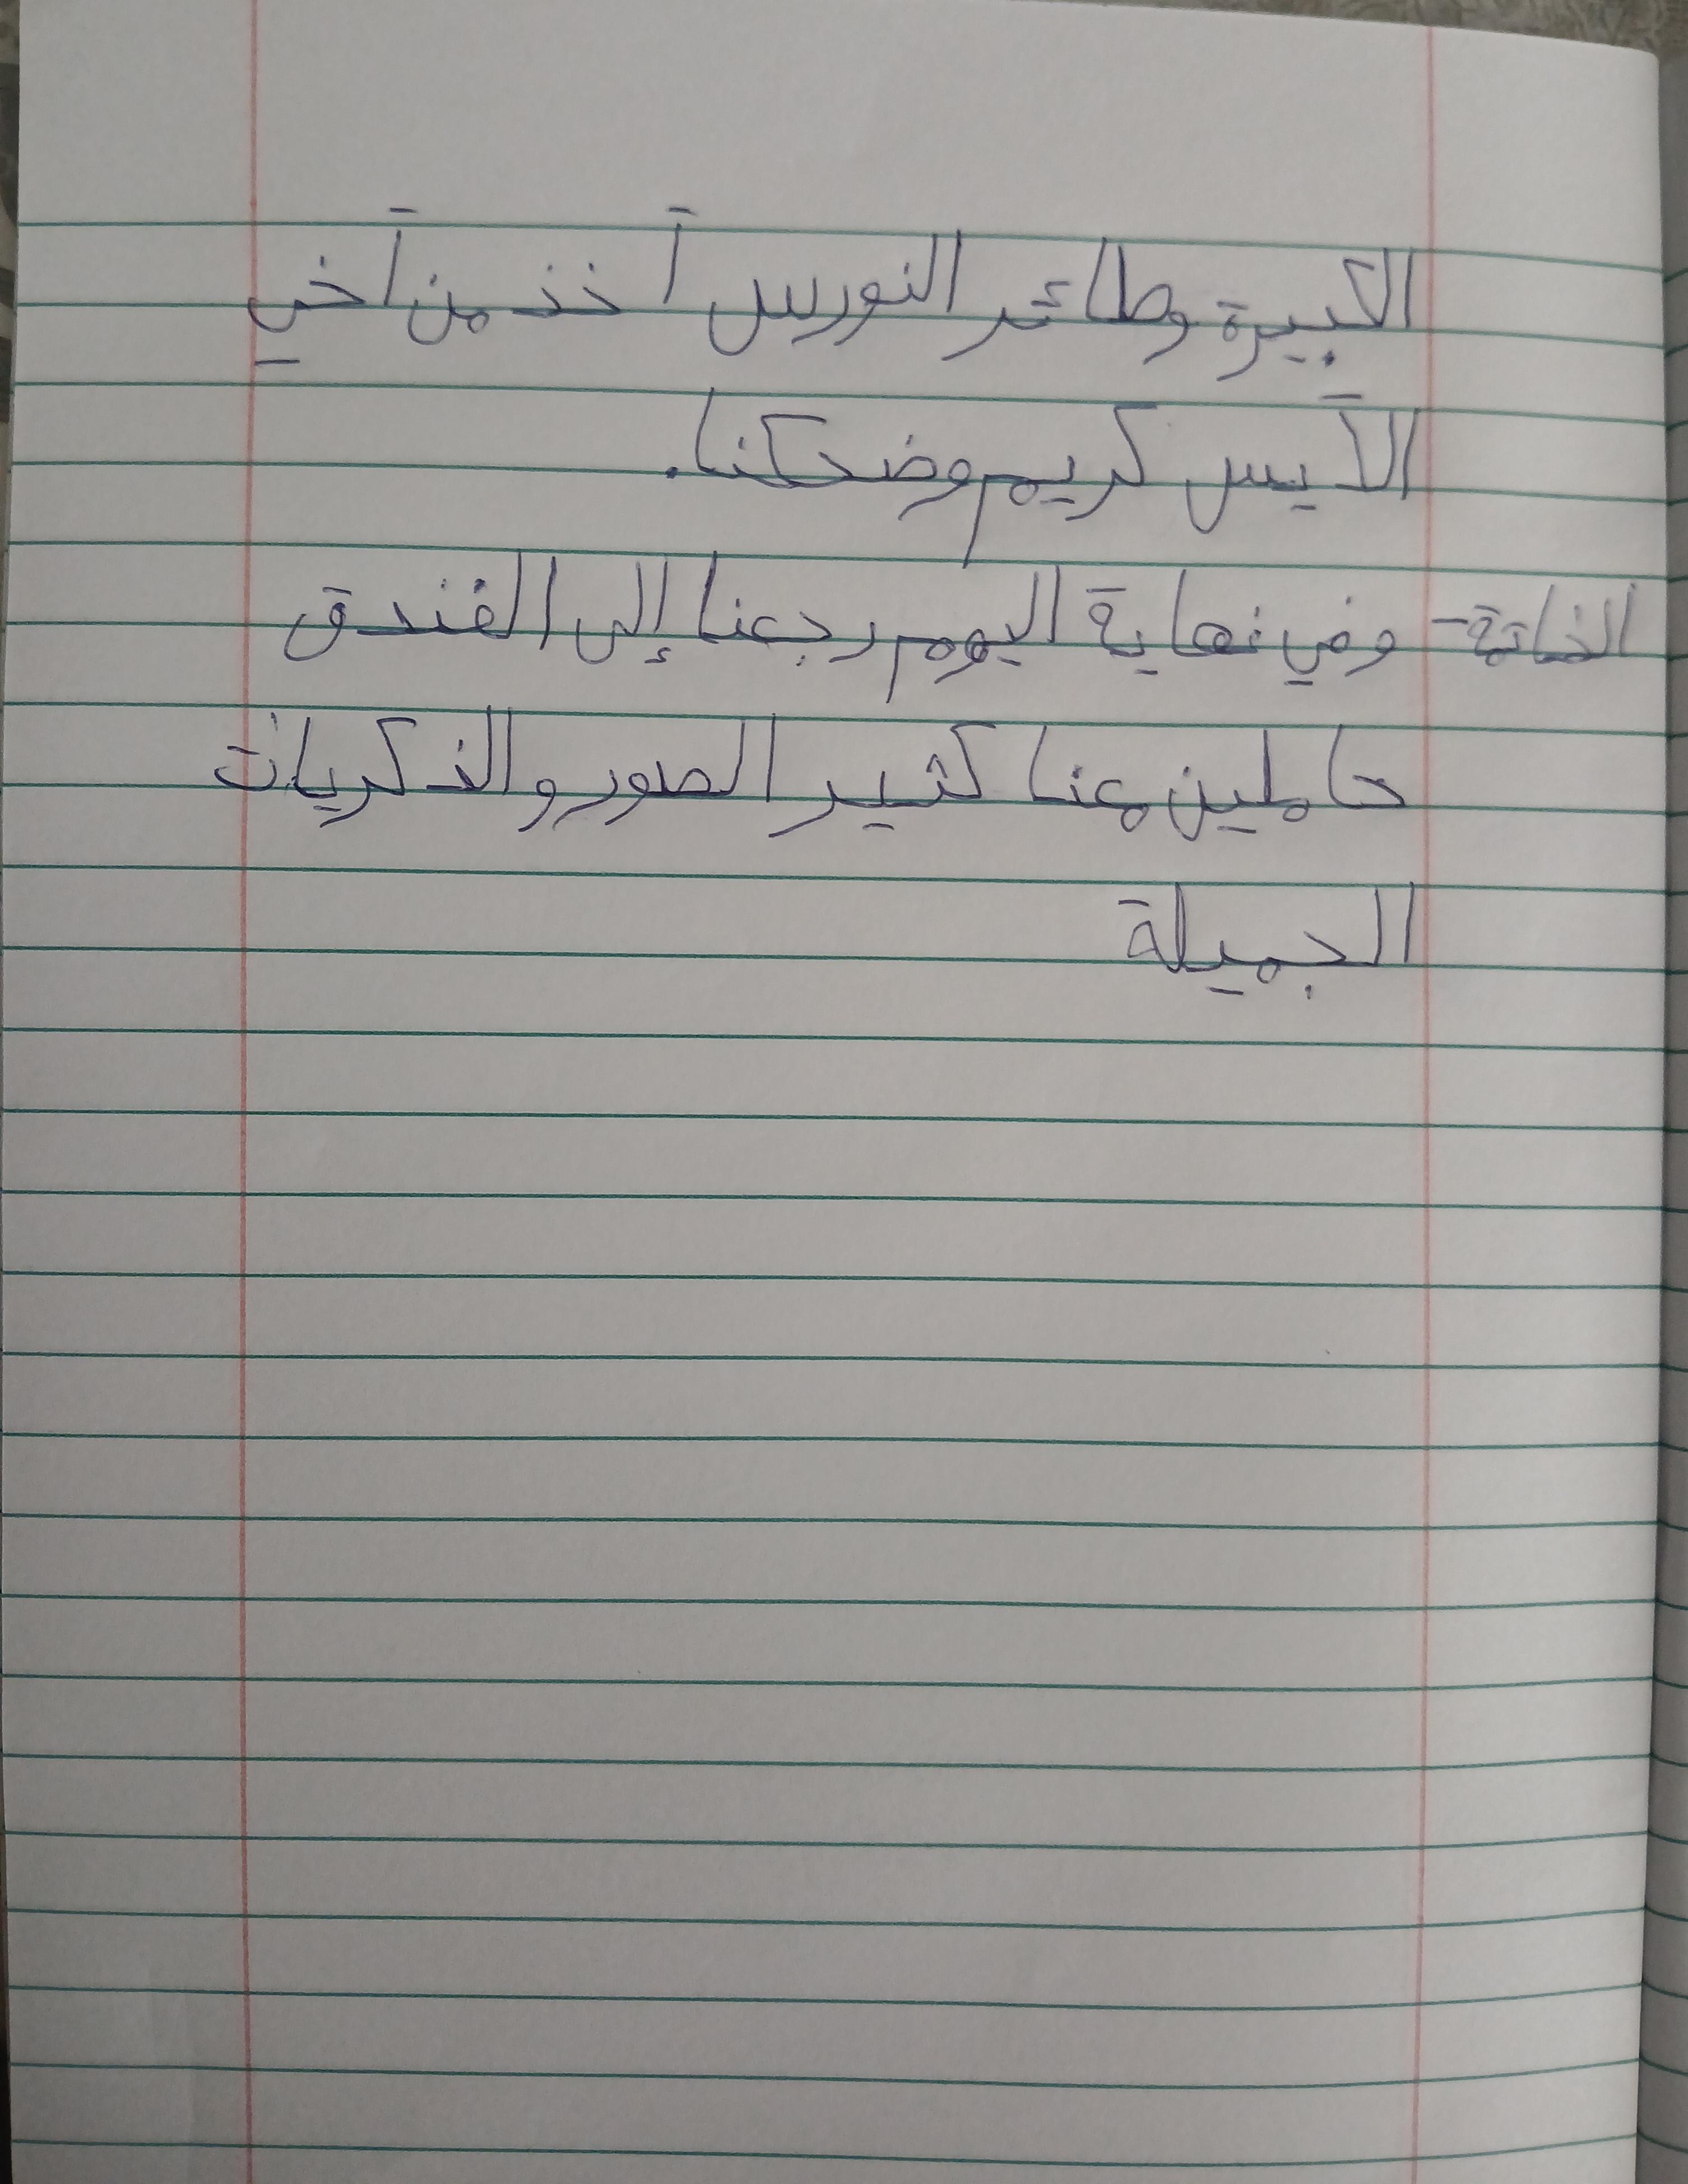 الكبيرة وطائر النورس آخذ من آخي
الآيس كريم وضحكنا.
الخاتمة - وفي نهاية اليوم رجعنا إلى الفندق
حاملين معنا كثير الصور والذكريات
الجميلة